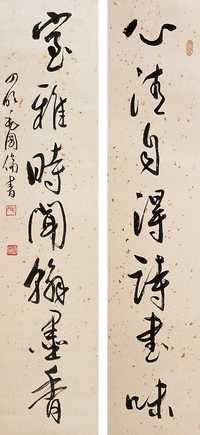 心清自得詩書味
室雅時聞翰墨香
四明毛國倫書